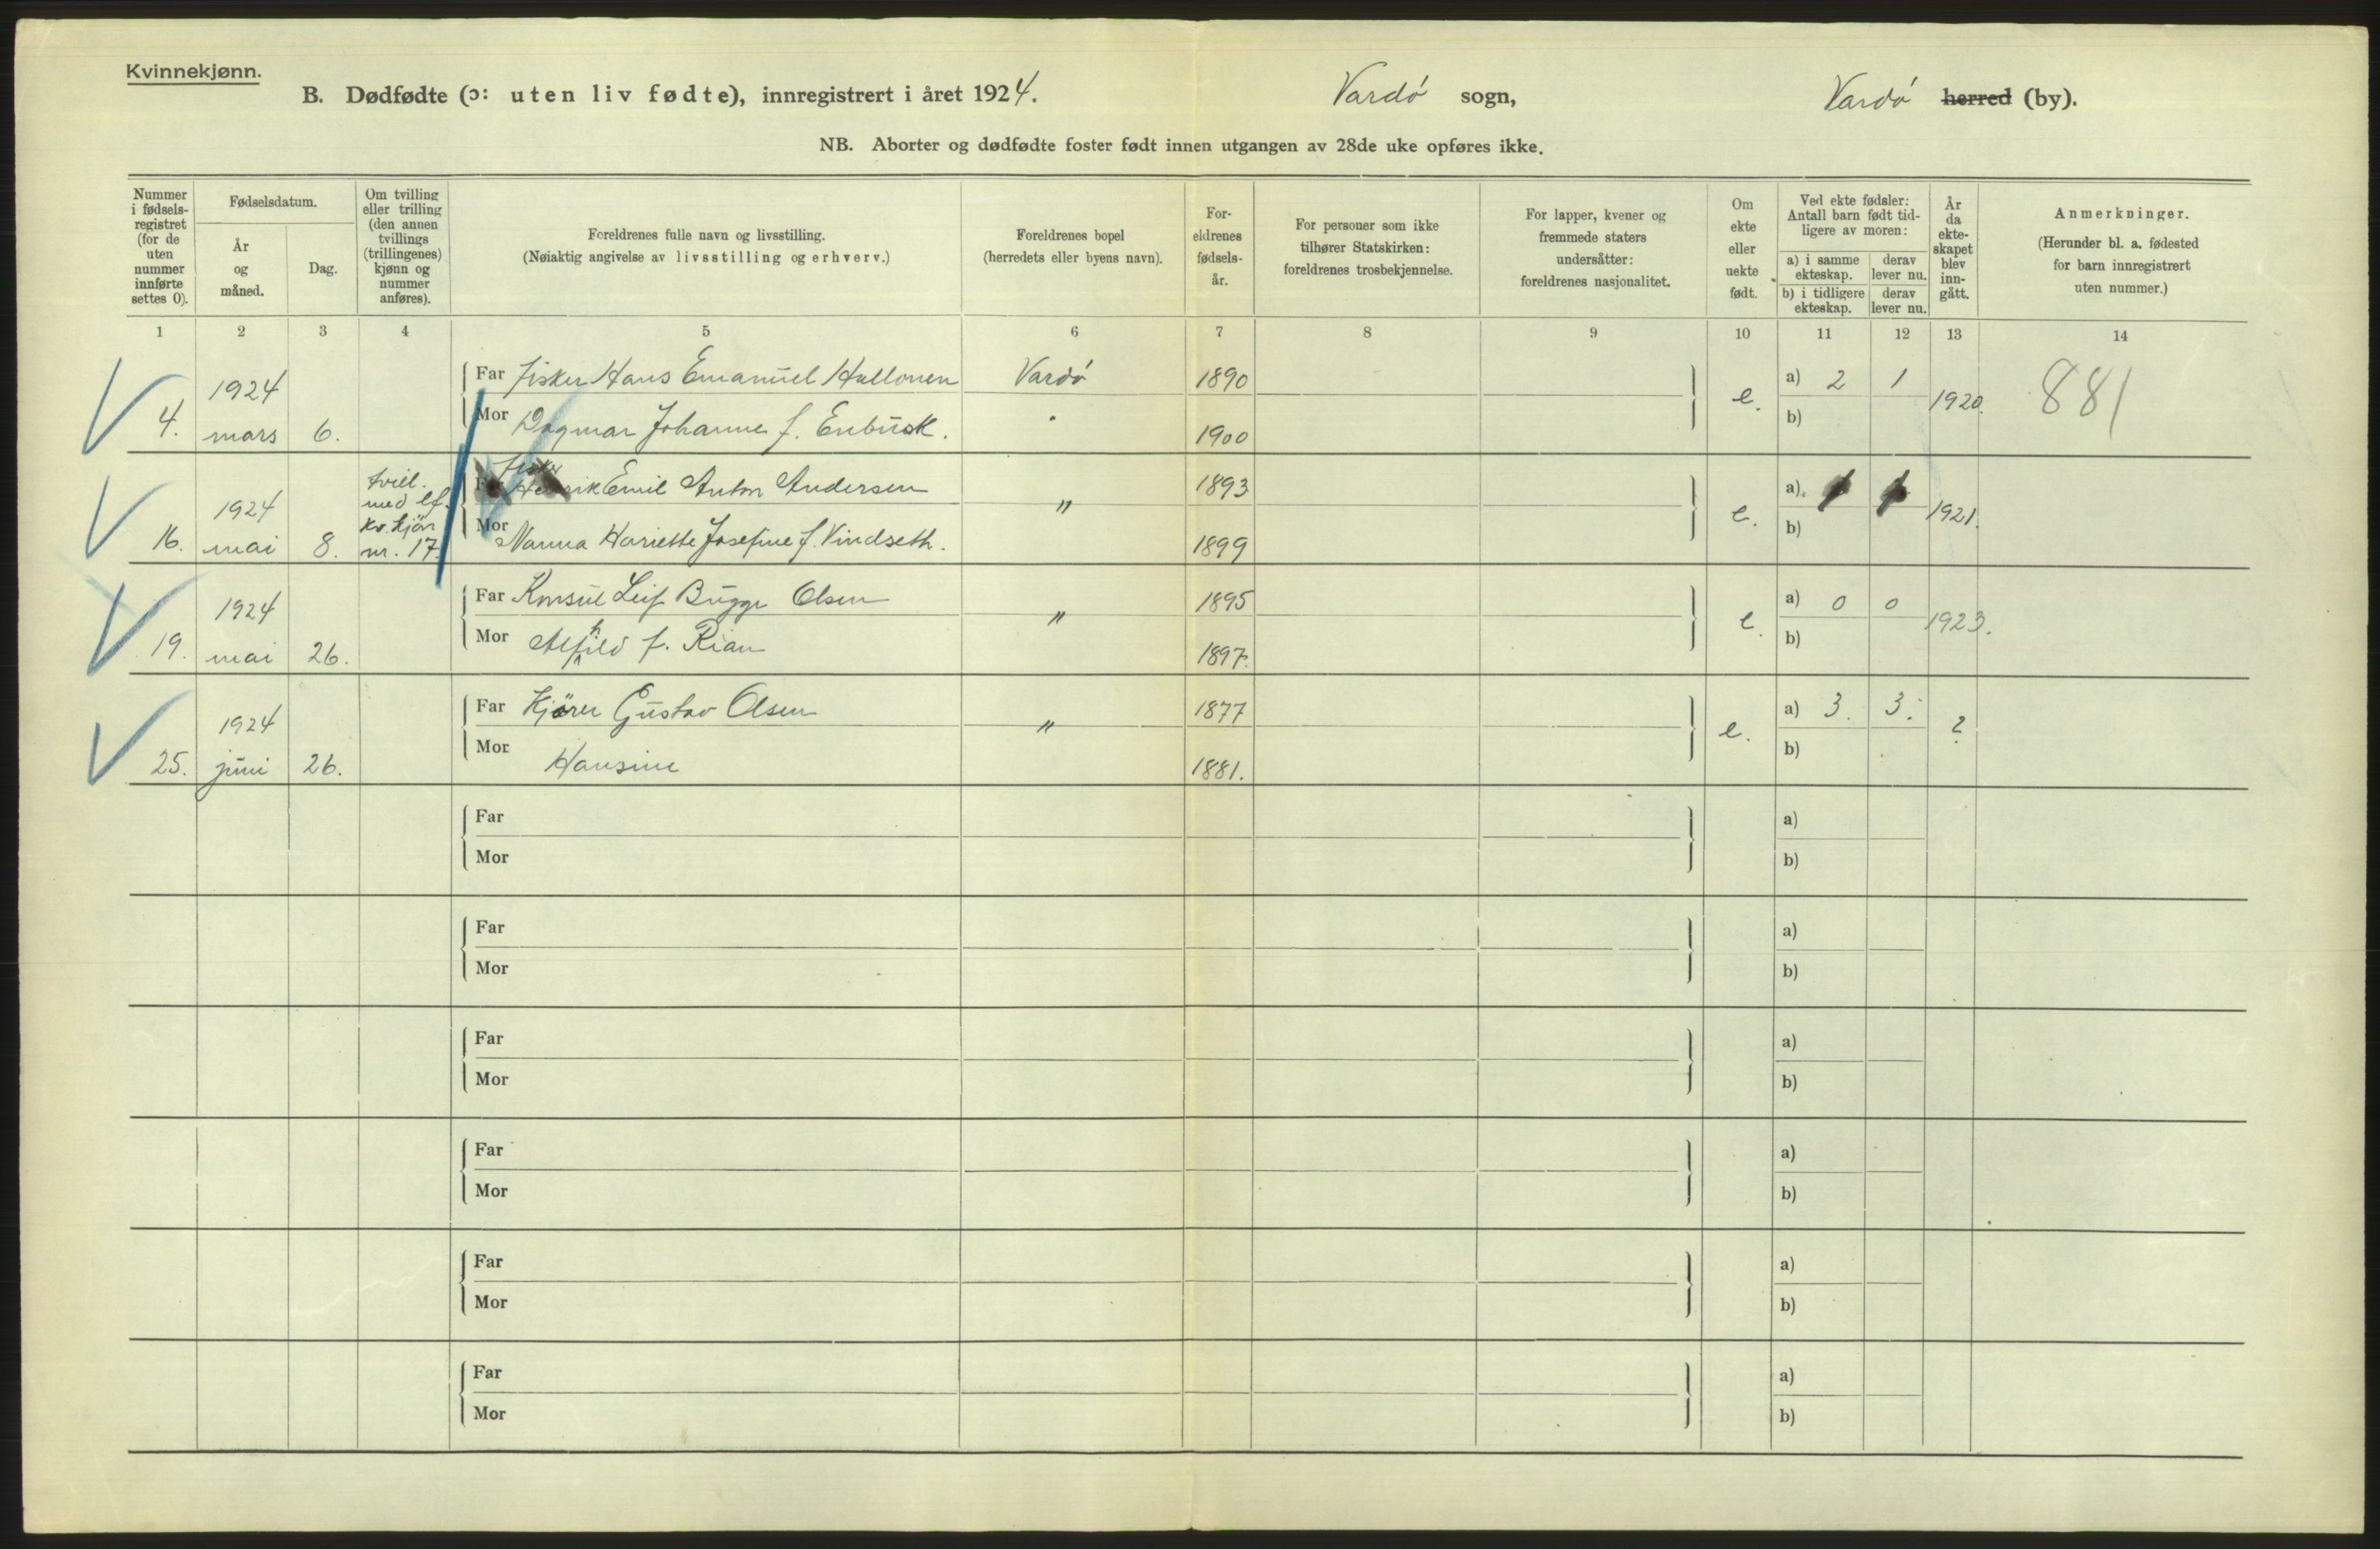 Kvinnekjønn.
B. Dødfødte (ɔ: uten liv fødte), innregistrert i året 1924. Vardö sogn, Vardö herred (by).
NB. Aborter og dødfødte foster født innen utgangen av 28de uke opføres ikke.
Nummer
i fødsels-
registret
(for de
uten
nummer
innførte
settes 0).
Fødselsdatum.
År
og
måned.
Dag.
Om tvilling
eller trilling
(den annen
tvillings
(trillingenes)
kjønn og
nummer
anføres).
Foreldrenes fulle navn og livsstilling.
(Nøiaktig angivelse av livsstilling og erhverv.)
Foreldrenes bopel
(herredets eller byens navn).
For-
eldrenes
fødsels-
år.
For personer som ikke
tilhører Statskirken:
foreldrenes trosbekjennelse.
For lapper, kvener og
fremmede staters
undersåtter:
foreldrenes nasjonalitet.
Om
ekte
eller
uekte
født.
Ved ekte fødsler:
Antall barn født tid-
ligere av moren:
a) i samme
ekteskap.
derav
lever nu.
b) i tidligere
ekteskap.
derav
lever nu.
År
da
ekte-
skapet
blev
inn-
gått.
Anmerkninger.
(Herunder bl. a. fødested
for barn innregistrert
uten nummer.)
1 2 3 4 5 6 7 8 9 10 11 12 13 14
4. 1924 mars 6.
Far Fisker Hans Emanuel Hallonen Vardö 1890
Mor Dagmar Johanne f. Enbusk. 1900
e. a) 2 1 1920. 881
b)
16. 1924 mai 8.
tvill.
med lf.
kv. kjön
nr. 17.
Fisker
Far Henrik Emil Anton Andersen " 1893
Mor Nanna Hariette Josefine f. Vindseth. 1899
e. a) 1921.
b)
19. 1924 mai 26.
Far Konsul Leif Bugge Olsen " 1895
Mor Alfhild f. Rian 1897.
e. a) 0 0 1923.
b)
25. 1924 juni 26.
Far Kjörer Gustav Olsen " 1877
Mor Hansine 1881.
e. a) 3. 3. ?
b)
Far a)
Mor b)
Far a)
Mor b)
Far a)
Mor b)
Far a)
Mor b)
Far a)
Mor b)
Far a)
Mor b)